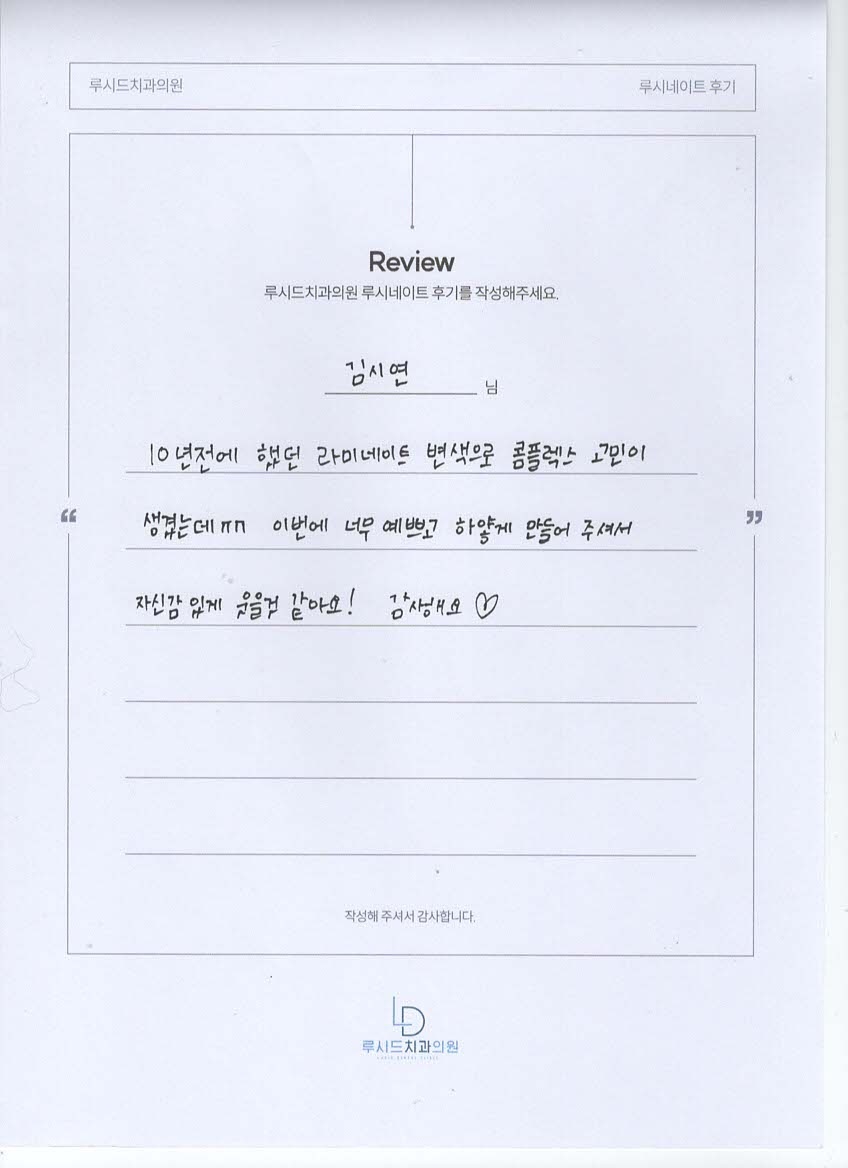 루시드치과의원
루시네이트 후기
Review
루시드치과의원 루시네이트 후기를 작성해주세요.
김시연 님
10년전에 했던 라미네이트 변색으로 콤플렉스 고민이
“ 생겼는데ㅠㅠ 이번에 너무 예쁘고 하얗게 만들어 주셔서 ”
자신감 있게 웃을것 같아요! 감사해요♡
작성해 주셔서 감사합니다.
LD
루시드치과의원
LUCID DENTAL CLINIC